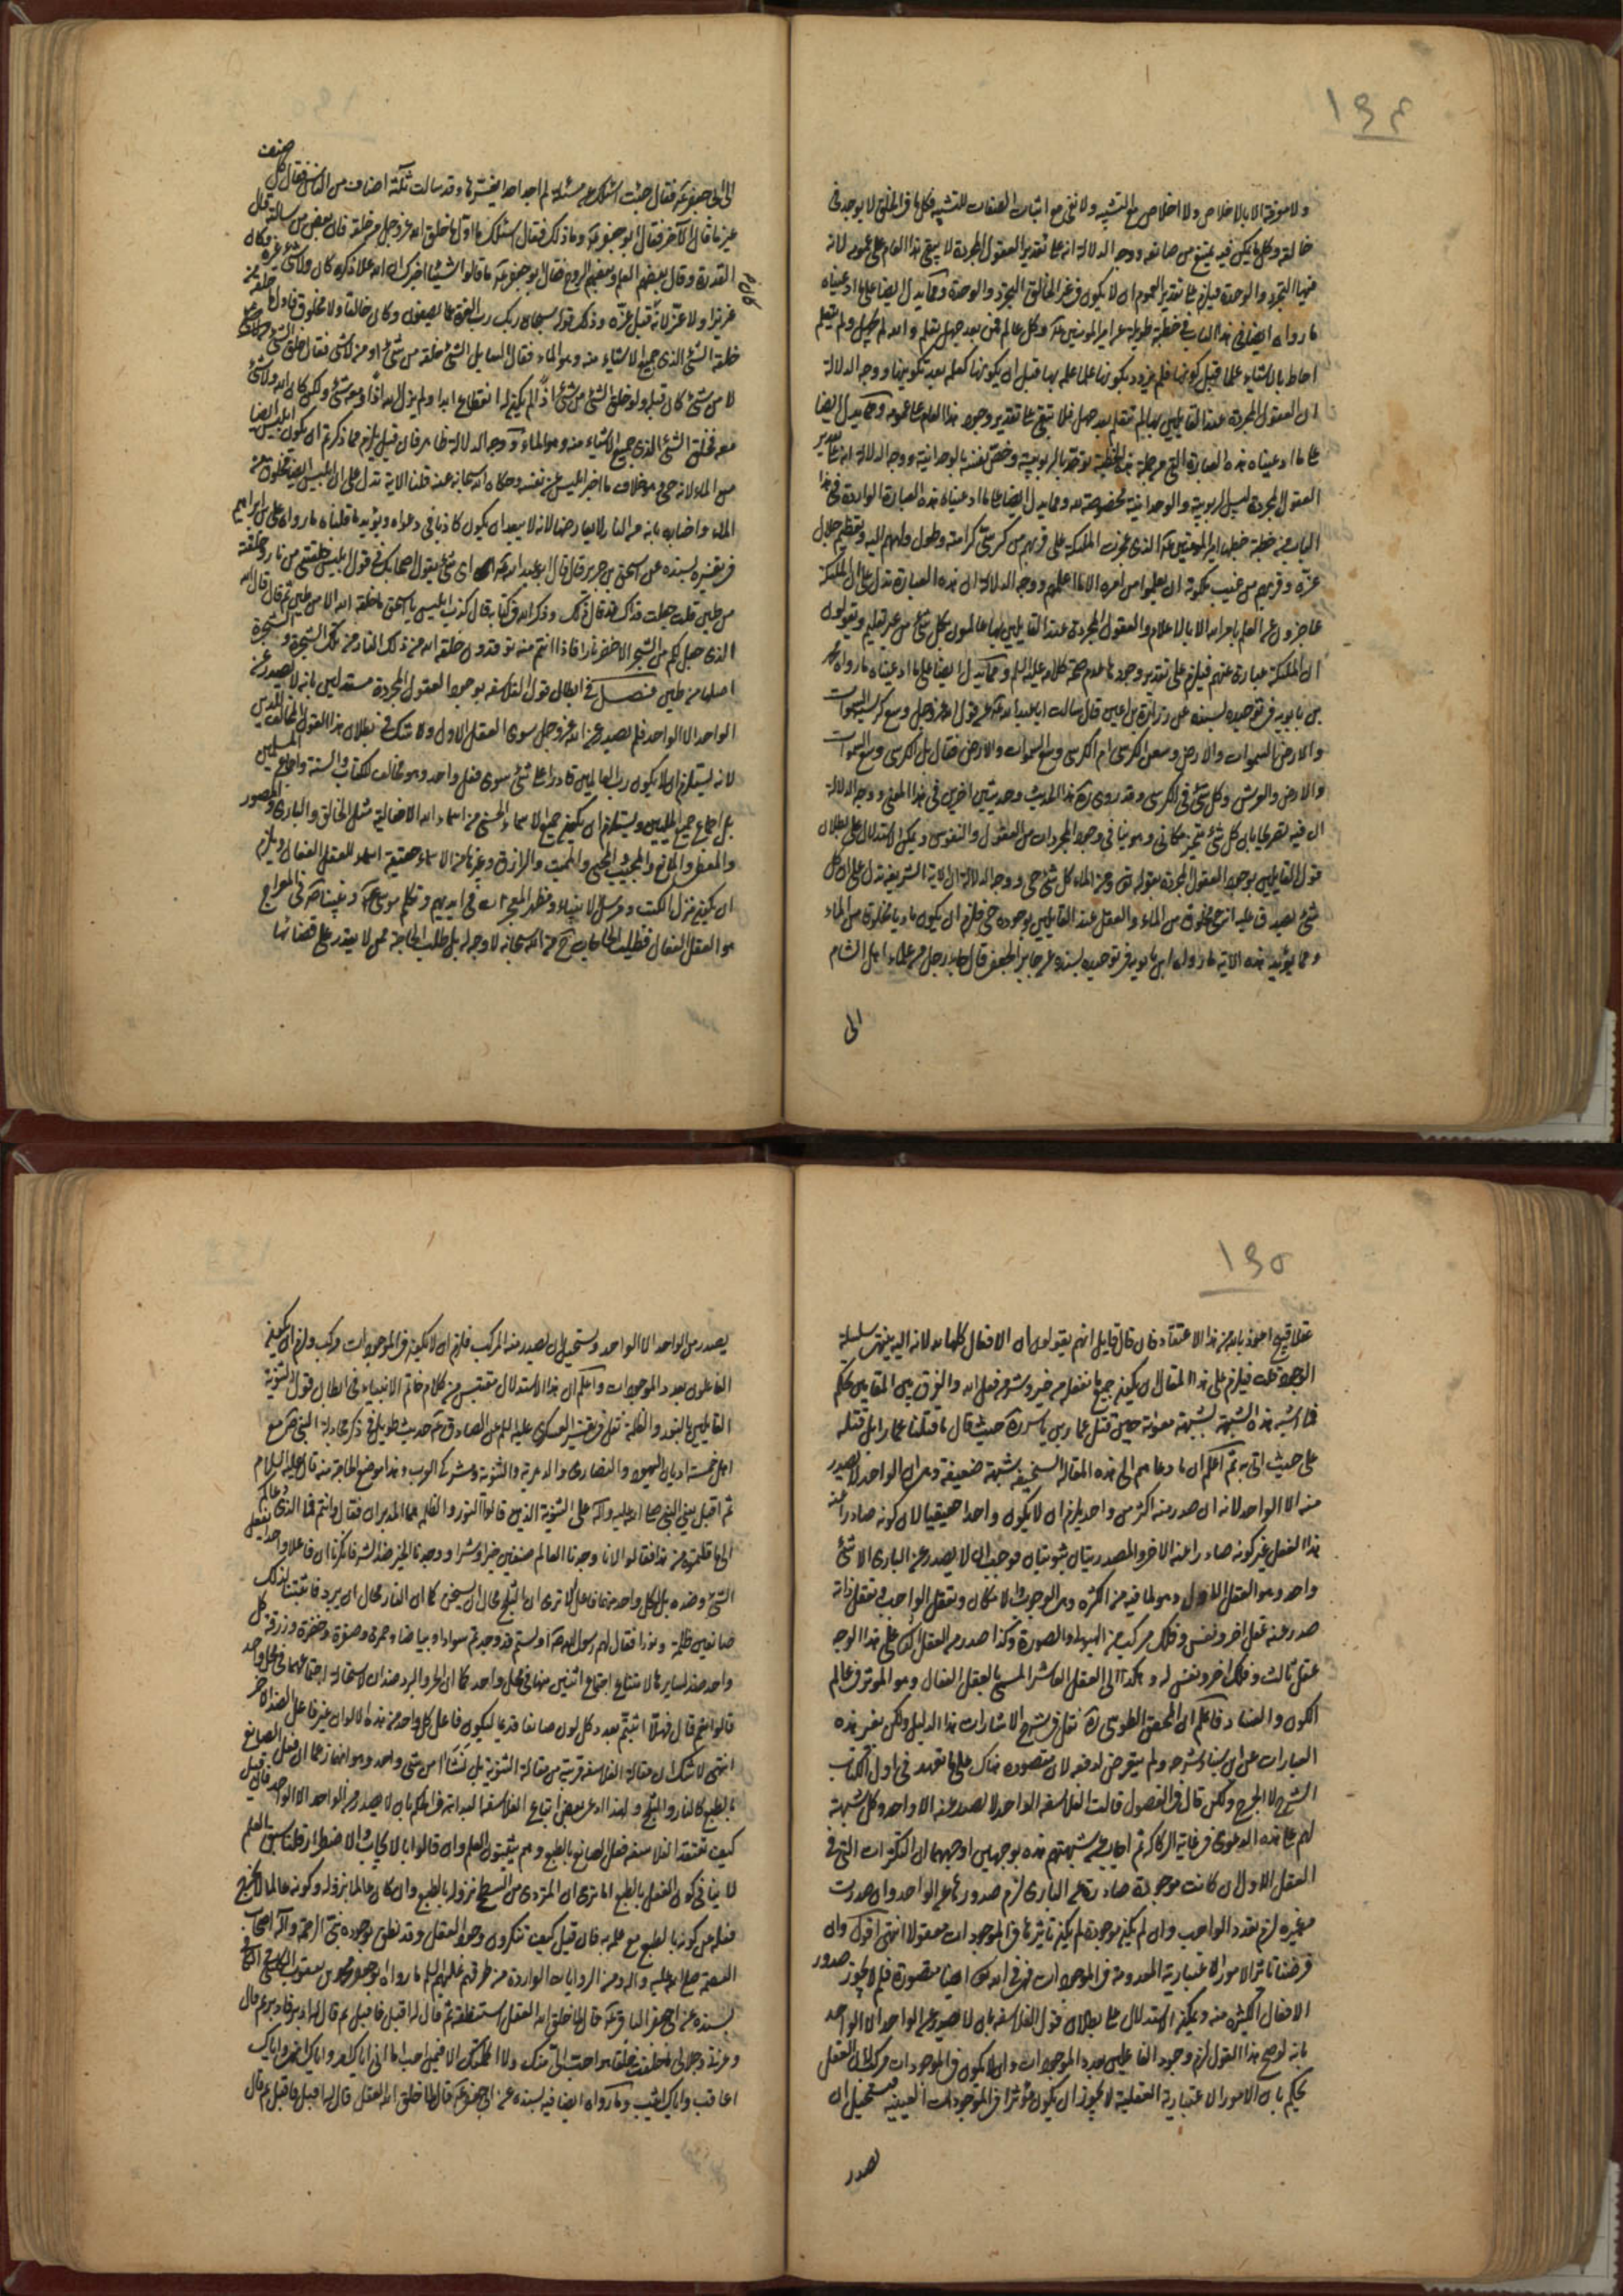 ١٩٤
ولا معرفة الا بالاخلاص ولا اخلاص مع التشبيه ولا نفي مع اثبات الصفات للتشبيه فكل ما في الخلق لا يوجد في
خالقه وكل ما يمكن فيه يمتنع من صانعه ووجه الدلالة انه على تقدير العقول المجردة لا يبقى هذا العام على عمومه لانه
التجرد والوحدة فيلزم على تقدير العموم ان لا يكون في غير الخالق التجرد والوحدة ومما يدل ايضا على ما ادعيناه
ما رواه ايضا في هذا الباب في خطبة طويلة عن امير المؤمنين وكل عالم فمن بعد جهل يتعلم والله لم يجهل ولم يتعلم
احاط بالاشياء علما قبل كونها فلم يزدد بكونها علما علمه بها قبل ان يكونها كعلمه بعد تكوينها ووجه الدلالة
ان العقول المجردة عند القايلين بها لم تتعلم بعد جهل فلا يبقى على تقدير وجودها هذا العام على عمومه ومما يدل ايضا
على ما ادعيناه هذه العبارة التي من جملة هذه الخطبة توحد بالربوبية وخص نفسه بالوحدانية ووجه الدلالة انه على تقدير
العقول المجردة ليس الربوبية والوحدانية مخصوصة له ومما يدل ايضا على ما ادعيناه هذه العبارة الواردة في هذا
الباب من خطبة خطبها امير المؤمنين الذي عجزت الملئكة على قربهم من كرسي كرامته وطول ولههم اليه وتعظيم جلال
عزه وقربهم من غيب ملكوته ان يعلموا من امره الا ما اعلمهم ووجه الدلالة ان هذه العبارة تدل على ان الملئكة
عاجزون عن العلم بامر الله الا بالاعلام والعقول المجردة عند القايلين بها عالمون بكل شيء من غير تعليم ويقولون
ان الملئكة عبارة عنهم فيلزم على تقدير وجودها عدم صحة كلامه عليه السلم ومما يدل ايضا على ما ادعيناه ما رواه محمد
بن بابويه في توحيده بسنده عن زرارة بن اعين قال سالت ابا عبد الله عن قول الله عز وجل وسع كرسيه السموات
والارض السموات والارض وسعن الكرسي ام الكرسي وسع السموات والارض فقال بل الكرسي وسع السموات
والارض والعرش وكل شيء في الكرسي وقد روى هذا الحديث وحديثين اخرين في هذا المعنى ووجه الدلالة
ان فيه تصريحا بان كل شيء متحيز مكاني وهو ينافي وجود المجردات من العقول والنفوس ويمكن الاستدلال على بطلان
قول القايلين بوجود العقول المجردة بقوله تعالى ومن الماء كل شيء حي ووجه الدلالة ان الاية الشريفة تدل على ان كل
شيء يصدق عليه انه حي مخلوق من الماء والعقل عند القايلين بوجوده حي فلزم ان يكون ماديا مخلوقا من الماء
ومما يؤيد هذه الاية ما رواه ابن بابويه في توحيده بسنده عن جابر الجعفي قال جاء رجل من علماء اهل الشام
الى
الى ابي جعفر فقال جئت اسئلك عن مسئلة لم اجد احدا يفسرها وقد سالت ثلثة اصناف من الناس فقال كل صنف
غير ما قال الآخر فقال ابو جعفر وما ذلك فقال اسئلك ما اول ما خلق الله عز وجل من خلقه فان بعض من سالته قال
القدرة وقال بعضهم العلم وبعضهم الروح فقال ابو جعفر ما قالوا شيئا اخبرك ان الله علا ذكره كان ولا شيء غيره وكان
عزيزا ولا عز لانه قبل عزه وذلك قوله سبحان ربك رب العزة عما يصفون وكان خالقا ولا مخلوق فاول شيء خلقه من
خلقه الشيء الذي جميع الاشياء منه وهو الماء فقال السايل الشيء خلقه من شيء او من لا شيء فقال خلق الشيء
لا من شيء كان قبله ولو خلق الشيء من شيء اذا لم يكن له انقطاع ابدا ولم يزل الله اذا ومعه شيء ولكن كان الله ولا شيء
معه فخلق الشيء الذي جميع الاشياء منه وهو الماء ووجه الدلالة ظاهر فان قيل يلزم مما ذكرتم ان يكون ابليس ايضا
من الماء لانه حي وهو خلاف ما اخبر ابليس عن نفسه وحكاه الله سبحانه عنه قلنا الاية تدل على ان ابليس ايضا مخلوق من
الماء واخباره بانه من النار لا يعارضها لانه لا يبعد ان يكون كاذبا في دعواه ويؤيد ما قلناه ما رواه علي بن ابراهيم
في تفسيره بسنده عن اسحق بن جرير قال قال ابو عبد الله اي شيء يقول اصحابك في قول ابليس خلقتني من نار وخلقته
من طين قلت جعلت فداك قد قال ذلك وذكره الله في كتابه قال كذب ابليس يا اسحق ما خلقه الله الا من طين ثم قال قال الله
الذي جعل لكم من الشجر الاخضر نارا فاذا انتم منه توقدون خلقه الله من ذلك النار من تلك الشجرة والشجرة
اصلها من طين فصل في ابطال قول الفلاسفة بوجود العقول المجردة مستدلين بانه لا يصدر عن
الواحد الا الواحد فلم يصدر عن الله عز وجل سوى العقل الاول ولا شك في بطلان هذا القول المخالف للدين
لانه يستلزم ان لا يكون رب العالمين قادرا على شيء سوى فعل واحد وهو مخالف للكتاب والسنة واجماع المسلمين
بل اجماع جميع المليين ويستلزم ان يكون جميع الاسماء الحسنى من اسماء الله الافعالية مثل الخالق والباري والمصور
والمعطي والمانع والمجيب والمحيي والمميت والرازق وغيرها من الاسماء حقيقة اسماء للعقل الفعال ويلزم
ان يكون منزل الكتب ومرسل الانبياء ومظهر المعجزات في ايديهم ومكلم موسى ونبينا في المعراج
هو العقل الفعال فطلب الحاجات من الله سبحانه لا وجه له بل طلب الحاجة ممن لا يقدر على قضائها
١٩٥
عقلا قبيح اعوذ بالله من هذا الاعتقاد فان قال قايل انهم يقولون ان الافعال كلها لله لانه اليه ينتهي سلسلة
الوجود قلت فيلزم على هذا المقال ان يكون جميع ما نفعله من خير وشر من فعل الله والفرق بين المقامين تحكم
فما اشبه هذه الشبهة بشبهة معوية حين قتل عمار بن ياسر حيث قال ما قتلنا عمارا بل قتله
علي حيث اتى به ثم اعلم ان ما دعاهم الى هذه المقالة السخيفة شبهة ضعيفة وهي ان الواحد لا يصدر
منه الا الواحد لانه ان صدر منه اكثر من واحد يلزم ان لا يكون واحدا حقيقيا لان كونه صادرا عنه
هذا الفعل غير كونه صادرا عنه الاخر والمصدريتان ثبوتيتان فوجب ان لا يصدر عن الباري الا شيء
واحد وهو العقل الاول وهو لما فيه من الكثرة وهي الوجوب والامكان وتعقل الواجب وتعقل ذاته
صدر عنه عقل اخر ونفس وفلك مركب من الهيولى والصورة وكذا صدر من العقل الثاني على هذا الوجه
عقل ثالث وفلك اخر ونفس له وهكذا الى العقل العاشر المسمى بالعقل الفعال وهو المؤثر في عالم
الكون والفساد فاعلم ان المحقق الطوسي نقل في شرح الاشارات هذا الدليل ولكن بغير هذه
العبارات ولم يتعرض لدفعه لان مقصوده هناك على ما تعهد في اول الكتاب
الشرح لا الجرح ولكن قال في الفصول قالت الفلاسفة الواحد لا يصدر عنه الا واحد وكل شبهة
لهم على هذه الدعوى في غاية الركاكة ثم اجاب عن شبهتهم هذه بوجهين اوجههما ان التكثرات التي في
العقل الاول ان كانت موجودة صادرة عن الباري لزم صدورها عن الواحد وان صدرت
من غيره لزم تعدد الواجب وان لم يكن موجودة لم يكن تاثيرها في الموجودات معقولا انتهى اقول وان
فرضنا تاثير الامور الاعتبارية المعدومة في الموجودات فهي في الله تعالى ايضا متصورة فلم لا يجوز صدور
الافعال الكثيرة منه ويمكن الاستدلال على بطلان قول الفلاسفة بان لا يصدر عن الواحد الا الواحد
بانه لو صح هذا القول لزم وجود الفاعلين بعدد الموجودات وان لا يكون في الموجودات مركب لان العقل
يحكم بان الامور الاعتبارية العقلية لا يجوز ان يكون مؤثرا في الموجودات العينية فيستحيل ان
يصدر
يصدر من الواحد الا الواحد ويستحيل ان يصدر منه المركب فلزم ان لا يكون في الموجودات مركب ولزم ان يكون
الفاعلون بعدد الموجودات واعلم ان هذا الاستدلال مقتبس من كلام خاتم الانبياء في ابطال قول الثنوية
القايلين بالنور والظلمة نقل في تفسير العسكري عليه السلم عن الصادق حديث طويل في ذكر مجادلة النبي مع
اهل خمسة اديان اليهود والنصارى والدهرية والثنوية ومشركي العرب وهذا موضع الحاجة منه قال عليه السلام
ثم اقبل يعني النبي صلى الله عليه وآله على الثنوية الذين قالوا النور والظلمة هما المدبران فقال وانتم فما الذي دعاكم
الى ما قلتموه من هذا فقالوا لانا وجدنا العالم صنفين خيرا وشرا ووجدنا الخير ضدا للشر فانكرنا ان فاعلا واحدا يفعل
الشيء وضده بل لكل واحد منهما فاعل الا ترى ان الثلج محال ان يسخن كما ان النار محال ان يبرد فاثبتنا لذلك
صانعين ظلمة ونورا فقال لهم رسول الله اولستم قد وجدتم سوادا وبياضا وحمرة وصفرة وخضرة وزرقة وكل
واحد ضد لسايرها لامتناع اجتماع اثنين منها في محل واحد كما ان الحر والبرد ضدان لاستحالة اجتماعهما في محل واحد
قالوا نعم قال فهلا اثبتم بعدد كل لون صانعا قديما ليكون فاعل كل واحد من هذه الالوان غير فاعل الضد الاخر
انتهى لا شك ان مقالة الفلاسفة قريبة من مقالة الثنوية بل نشأتا من شيء واحد وهو انهما زعما ان فعل الصانع
بالطبع كالنار والثلج ولهذا ادعى بعض اتباع الفلاسفة البداهة في الحكم بان لا يصدر من الواحد الا الواحد فان قيل
كيف تعتقد الفلاسفة فعل الصانع بالطبع وهم يثبتون العلم وان قالوا بالايجاب والاضطرار قلنا سبق العلم
لا ينافي كون الفعل بالطبع اما ترى ان المتردي من السطح نزوله بالطبع وان كان عالما بنزوله وكونه عالما لا يخرج
فعله من كونه بالطبع مع علمه به فان قيل كيف تنكرون وجود العقل وقد نطق بوجوده نبي الرحمة وآله اصحاب
العصمة صلى الله عليه وآله ومن الروايات الواردة من طرقهم عليهم السلم ما رواه ابو جعفر محمد بن يعقوب الكليني في الكافي
بسنده عن ابي جعفر الباقر قال لما خلق الله العقل استنطقه ثم قال له اقبل فاقبل ثم قال له ادبر فادبر ثم قال
وعزتي وجلالي ما خلقت خلقا هو احب الي منك ولا اكملتك الا فيمن احب اما اني اياك امر واياك انهى واياك
اعاقب واياك اثيب وما رواه ايضا فيه بسنده عن ابي جعفر قال لما خلق الله العقل قال له اقبل فاقبل ثم قال